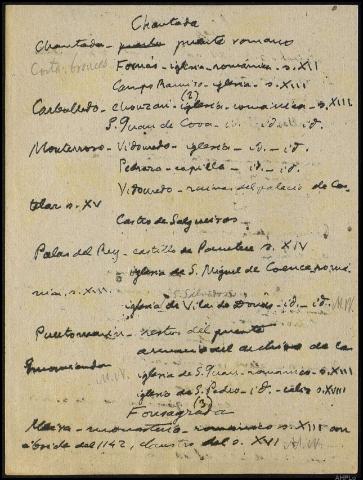 Chantada
Chantada - puente romano
Fornás - iglesia románica - s. XII
Campo Ramiro - iglesia - s. XIII
(2)
Carballedo - Chouzán - iglesia románica - s. XIII
S. Juan de Cova - id. id. id.
Monterroso - Vidouredo - iglesia - id. - id.
Pedraza - capilla - id. - id.
Vidouredo - ruinas del palacio de Cas-
telar s. XV
Castro de Salgueiros
Palas del Rey - castillo de Pambre s. XIV
iglesia de S. Miguel de Coence romá-
nica, s. XIII
iglesia de Vilar de Donas - id. - id. M.N.
Puertomarín - restos del puente
armario del archivo de la
encomienda
M.N. iglesia de S. Juan - románica - s. XIII
iglesia de S. Pedro - id. - s. XIII
(3)
Fonsagrada
Meira - monasterio - románico s. XII
ábside del 1142, claustro del s. XVI M.N.
AHPLu